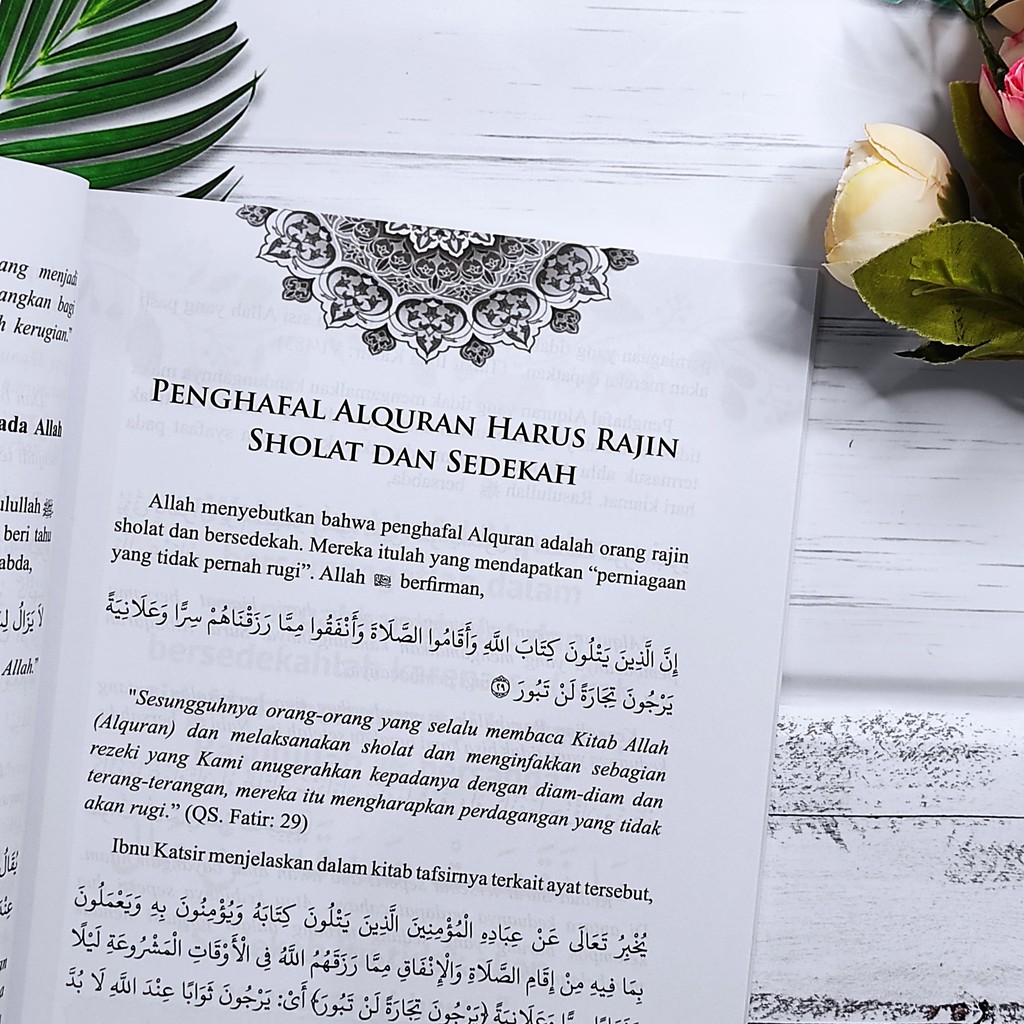 ang menjadi
angkan bagi
h kerugian."
ada Allah
ulullah ﷺ
beri tahu
abda,
لَا يَزَالُ
Allah."
PENGHAFAL ALQURAN HARUS RAJIN
SHOLAT DAN SEDEKAH
Allah menyebutkan bahwa penghafal Alquran adalah orang rajin
sholat dan bersedekah. Mereka itulah yang mendapatkan “perniagaan
yang tidak pernah rugi”. Allah berfirman,
إِنَّ الَّذِينَ يَتْلُونَ كِتَابَ اللَّهِ وَأَقَامُوا الصَّلَاةَ وَأَنْفَقُوا مِمَّا رَزَقْنَاهُمْ سِرًّا وَعَلَانِيَةً
يَرْجُونَ تِجَارَةً لَنْ تَبُورَ ٢٩
"Sesungguhnya orang-orang yang selalu membaca Kitab Allah
(Alquran) dan melaksanakan sholat dan menginfakkan sebagian
rezeki yang Kami anugerahkan kepadanya dengan diam-diam dan
terang-terangan, mereka itu mengharapkan perdagangan yang tidak
akan rugi.” (QS. Fatir: 29)
Ibnu Katsir menjelaskan dalam kitab tafsirnya terkait ayat tersebut,
يُخْبِرُ تَعَالَى عَنْ عِبَادِهِ الْمُؤْمِنِينَ الَّذِينَ يَتْلُونَ كِتَابَهُ وَيُؤْمِنُونَ بِهِ وَيَعْمَلُونَ
بِمَا فِيهِ مِنْ إِقَامِ الصَّلَاةِ وَالْإِنْفَاقِ مِمَّا رَزَقَهُمُ اللَّهُ فِي الْأَوْقَاتِ الْمَشْرُوعَةِ لَيْلًا
وَعَلَانِيَةً ﴿يَرْجُونَ تِجَارَةً لَنْ تَبُورَ﴾ أَيْ: يَرْجُونَ ثَوَابًا عِنْدَ اللَّهِ لَا بُدَّ